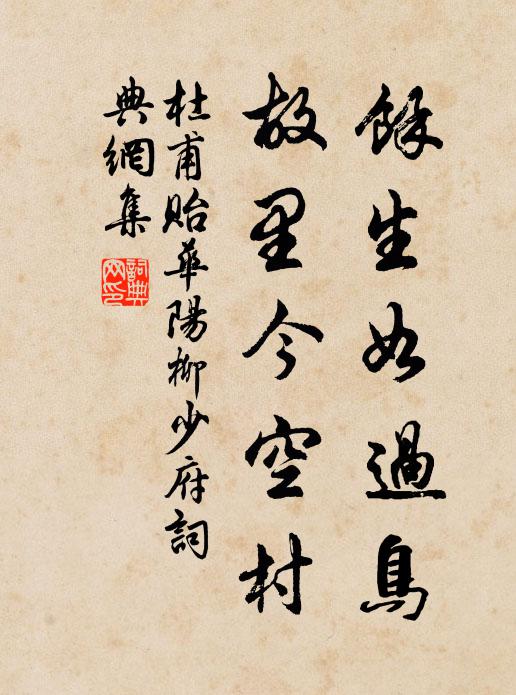 餘生如過鳥
故里今空村
杜甫貽華陽柳少府詞
典網集
詞典
網印